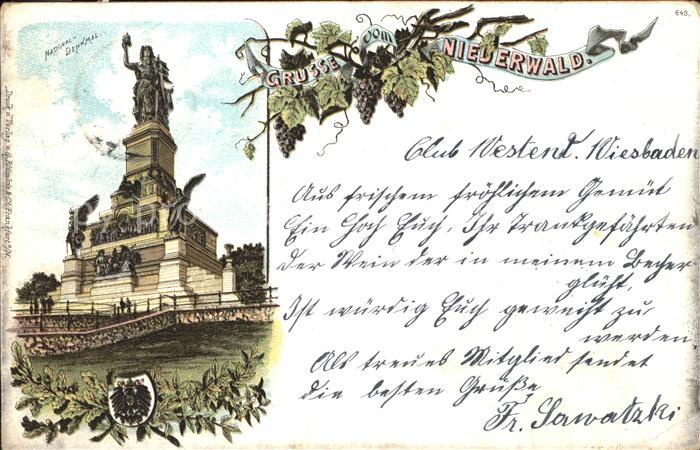 643.
NATIONAL-
DENKMAL.
GRÜSSE VOM NIEDERWALD.
Club Westend. Wiesbaden
Aus frischem fröhlichem Gemüt
Ein Hoch Euch, Ihr Trankgefährten
Der Wein der in meinem Becher
glüht,
Ist würdig Euch geweiht zu
werden.
Als treues Mitglied sendet
die besten Grüße
Fr. Sawatzki
Druck u. Verlag v.
Frankfurt a/M.